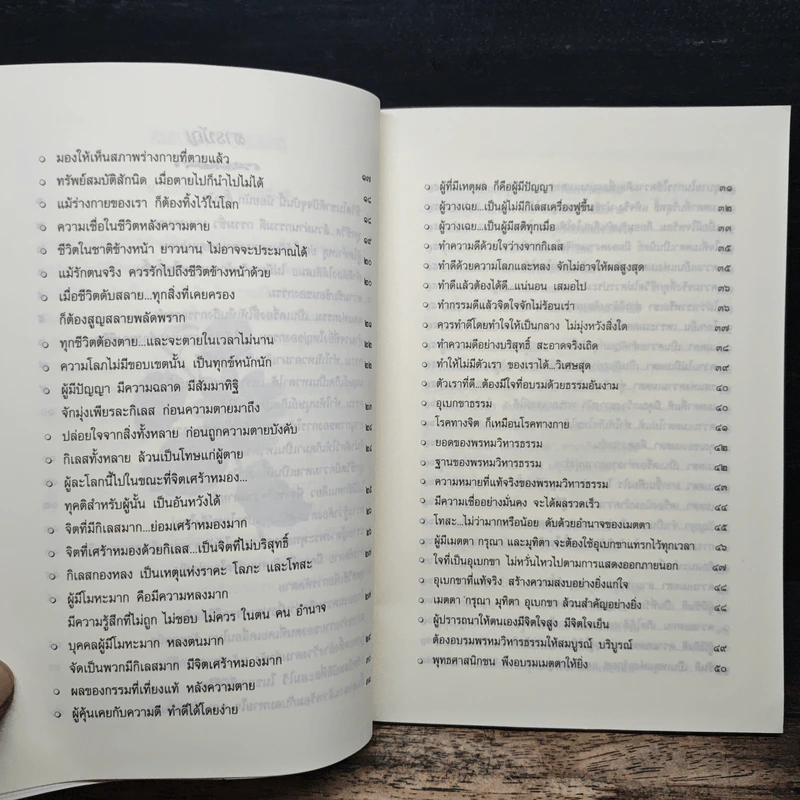 มองให้เห็นสภาพร่างกายที่ตายแล้ว ๑๗
ทรัพย์สมบัติสักนิด เมื่อตายไปก็นำไปไม่ได้ ๑๘
แม้ร่างกายของเรา ก็ต้องทิ้งไว้ในโลก ๑๘
ความเชื่อในชีวิตหลังความตาย ๑๙
ชีวิตในชาติข้างหน้า ยาวนาน ไม่อาจจะประมาณได้ ๒๐
แม้รักตนจริง ควรรักไปถึงชีวิตข้างหน้าด้วย ๒๐
เมื่อชีวิตดับสลาย...ทุกสิ่งที่เคยครอง
ก็ต้องสูญสลายพลัดพราก ๒๑
ทุกชีวิตต้องตาย...และจะตายในเวลาไม่นาน ๒๒
ความโลภไม่มีขอบเขตนั้น เป็นทุกข์หนักนัก ๒๒
ผู้มีปัญญา มีความฉลาด มีสัมมาทิฐิ
จักมุ่งเพียรละกิเลส ก่อนความตายมาถึง ๒๓
ปล่อยใจจากสิ่งทั้งหลาย ก่อนถูกความตายบังคับ
กิเลสทั้งหลาย ล้วนเป็นโทษแก่ผู้ตาย
ผู้ละโลกนี้ไปในขณะที่จิตเศร้าหมอง...
ทุคติสำหรับผู้นั้น เป็นอันหวังได้
จิตที่มีกิเลสมาก...ย่อมเศร้าหมองมาก
จิตที่เศร้าหมองด้วยกิเลส...เป็นจิตที่ไม่บริสุทธิ์
กิเลสกองหลง เป็นเหตุแห่งราคะ โลภะ และโทสะ
ผู้มีโมหะมาก คือมีความหลงมาก
มีความรู้สึกที่ไม่ถูก ไม่ชอบ ไม่ควร ในตน คน อำนาจ
บุคคลผู้มีโมหะมาก หลงตนมาก
จัดเป็นพวกมีกิเลสมาก มีจิตเศร้าหมองมาก
ผลของกรรมที่เที่ยงแท้ หลังความตาย
ผู้คุ้นเคยกับความดี ทำดีได้โดยง่าย
ผู้ที่มีเหตุผล ก็คือผู้มีปัญญา ๓๑
ผู้วางเฉย...เป็นผู้ไม่มีกิเลสเครื่องฟูขึ้น ๓๒
ผู้วางเฉย...เป็นผู้มีสติทุกเมื่อ ๓๓
ทำความดีด้วยใจว่างจากกิเลส ๓๕
ทำดีด้วยความโลภและหลง จักไม่อาจให้ผลสูงสุด ๓๕
ทำดีแล้วต้องได้ดี...แน่นอน เสมอไป ๓๖
ทำกรรมดีแล้วจิตใจจักไม่ร้อนเร่า ๓๖
ควรทำดีโดยทำใจให้เป็นกลาง ไม่มุ่งหวังสิ่งใด ๓๗
ทำความดีอย่างบริสุทธิ์ สะอาดจริงเถิด ๓๘
ทำให้ไม่มีตัวเรา ของเราได้...วิเศษสุด ๓๙
ตัวเราที่ดี...ต้องมีใจที่อบรมด้วยธรรมอันงาม ๔๐
อุเบกขาธรรม ๔๐
โรคทางจิต ก็เหมือนโรคทางกาย ๔๑
ยอดของพรหมวิหารธรรม ๔๒
ฐานของพรหมวิหารธรรม ๔๒
ความหมายที่แท้จริงของพรหมวิหารธรรม ๔๓
มีความเชื่ออย่างมั่นคง จะได้ผลรวดเร็ว ๔๔
โทสะ...ไม่ว่ามากหรือน้อย ดับด้วยอำนาจของเมตตา ๔๕
ผู้มีเมตตา กรุณา และมุทิตา จะต้องใช้อุเบกขาแทรกไว้ทุกเวลา ๔๖
ใจที่เป็นอุเบกขา ไม่หวั่นไหวไปตามการแสดงออกภายนอก ๔๗
อุเบกขาที่แท้จริง สร้างความสงบอย่างยิ่งแก่ใจ ๔๘
เมตตา กรุณา มุทิตา อุเบกขา ล้วนสำคัญอย่างยิ่ง ๔๘
ผู้ปรารถนาให้ตนเองมีจิตใจสูง มีจิตใจเย็น
ต้องอบรมพรหมวิหารธรรมให้สมบูรณ์ บริบูรณ์ ๔๙
พุทธศาสนิกชน พึงอบรมเมตตาให้ยิ่ง ๕๐